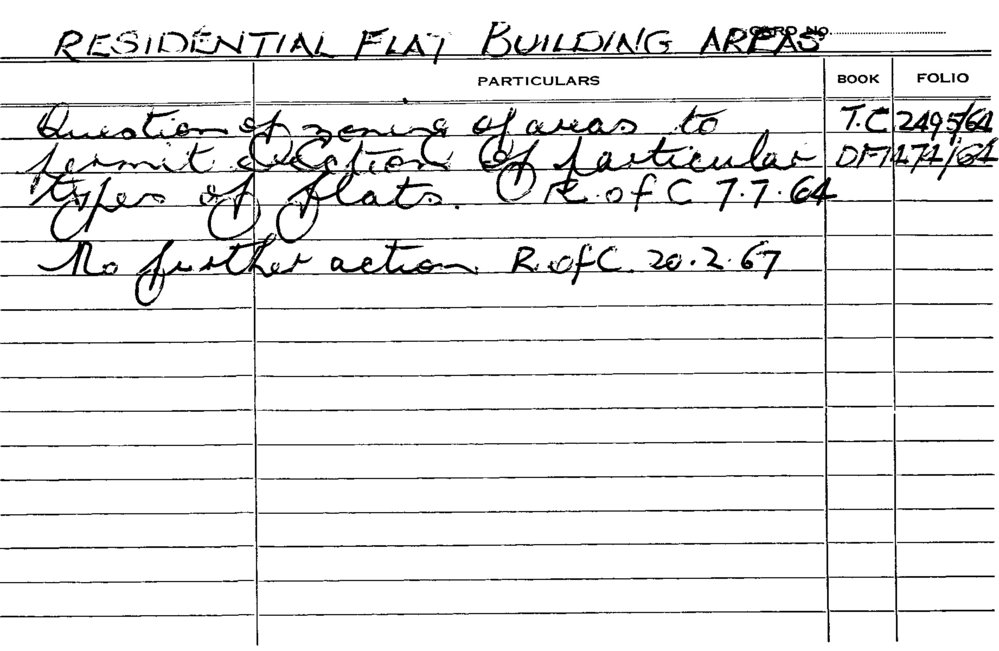 RESIDENTIAL FLAT BUILDING AREAS CARD NO.
PARTICULARS BOOK FOLIO
Question of zoning of areas to T.C 2495/64
permit erection of particular DM 174/64
types of flats. R. of C 7.7.64
No further action R. of C. 20.2.67